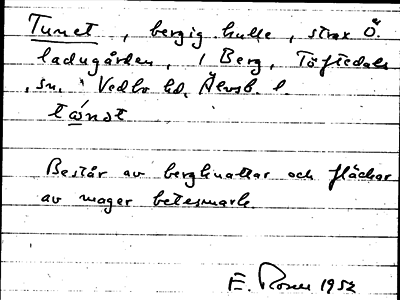 Tunet, bergig kulle, strax Ö.
ladugården, i Berg, Töftedals
sn. Vedbo hd. Älvsb. l.
Består av bergknattar och fläckar
av mager betesmark.
E. Rosen 1952